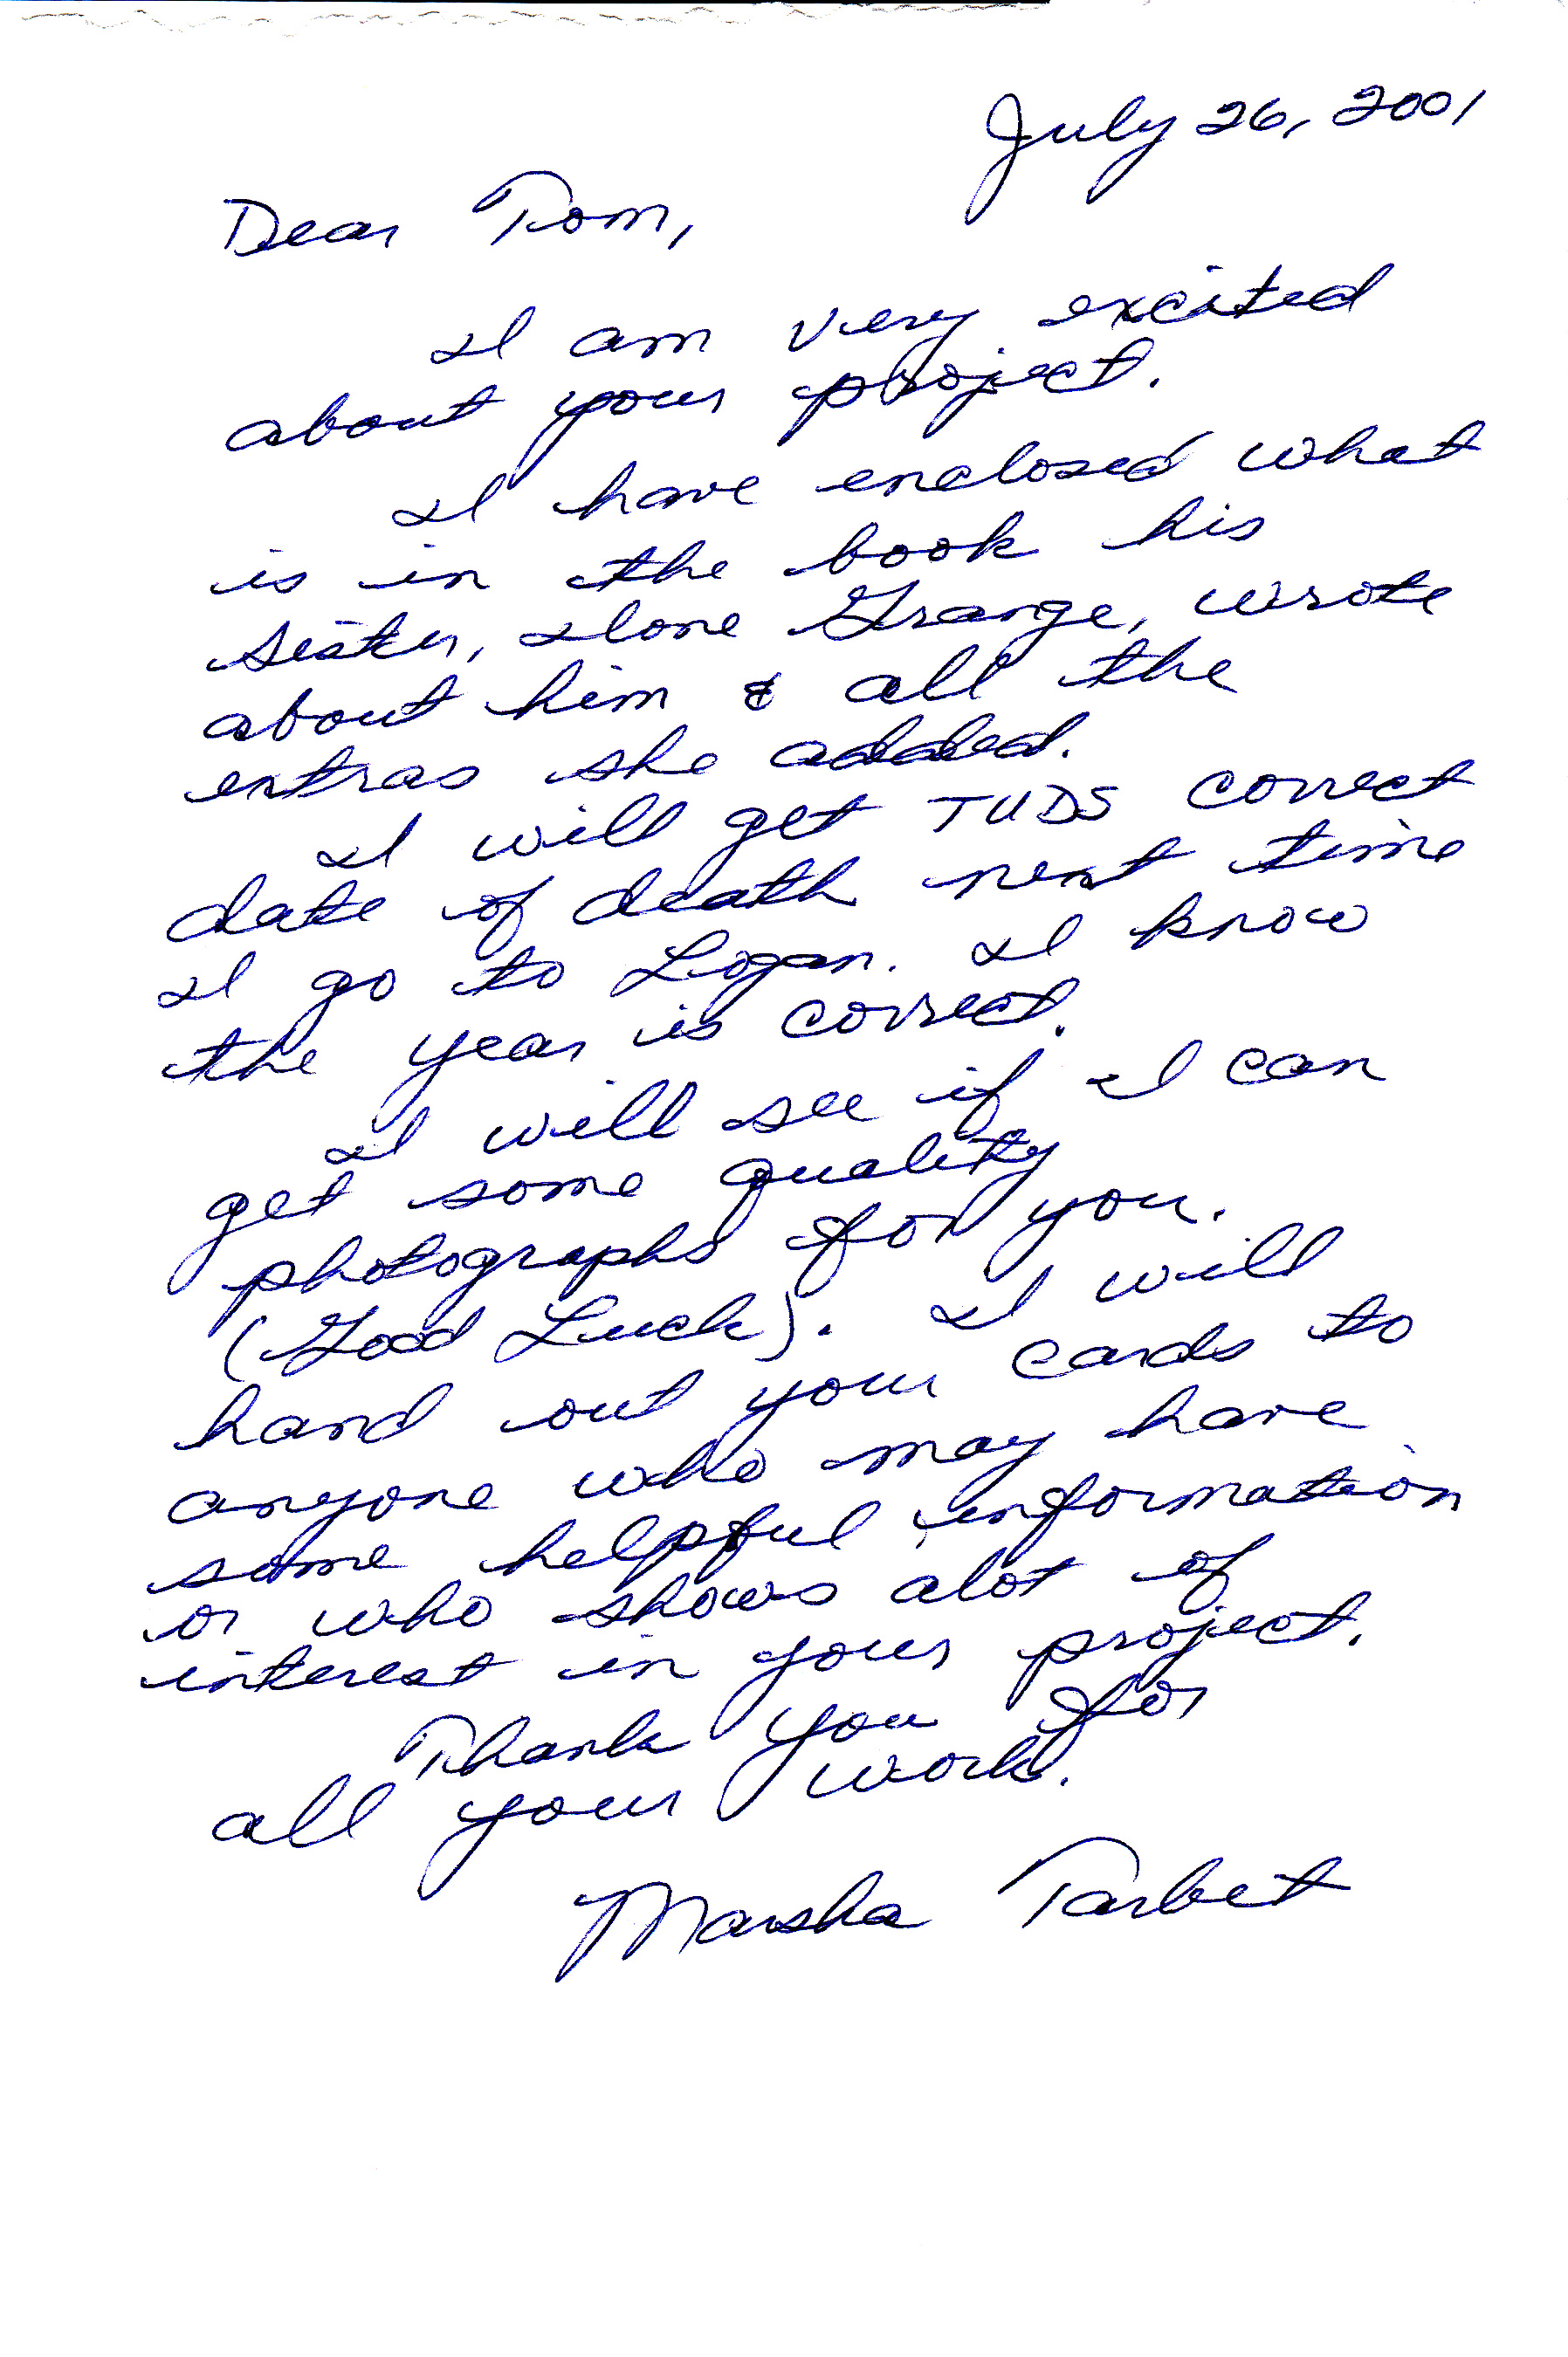 July 26, 2001
Dear Tom,
I am very excited
about your project.
I have enclosed what
is in the book his
sister, Ilone Grange, wrote
about him & all the
extras she added.
I will get TUDS correct
date of death next time
I go to Logan. I know
the year is correct.
I will see if I can
get some quality
photographs for you.
(Good Luck). I will
hand out your cards to
anyone who may have
some helpful information
or who shows alot of
interest in your project.
Thank you for
all your work.
Marsha Tarbet